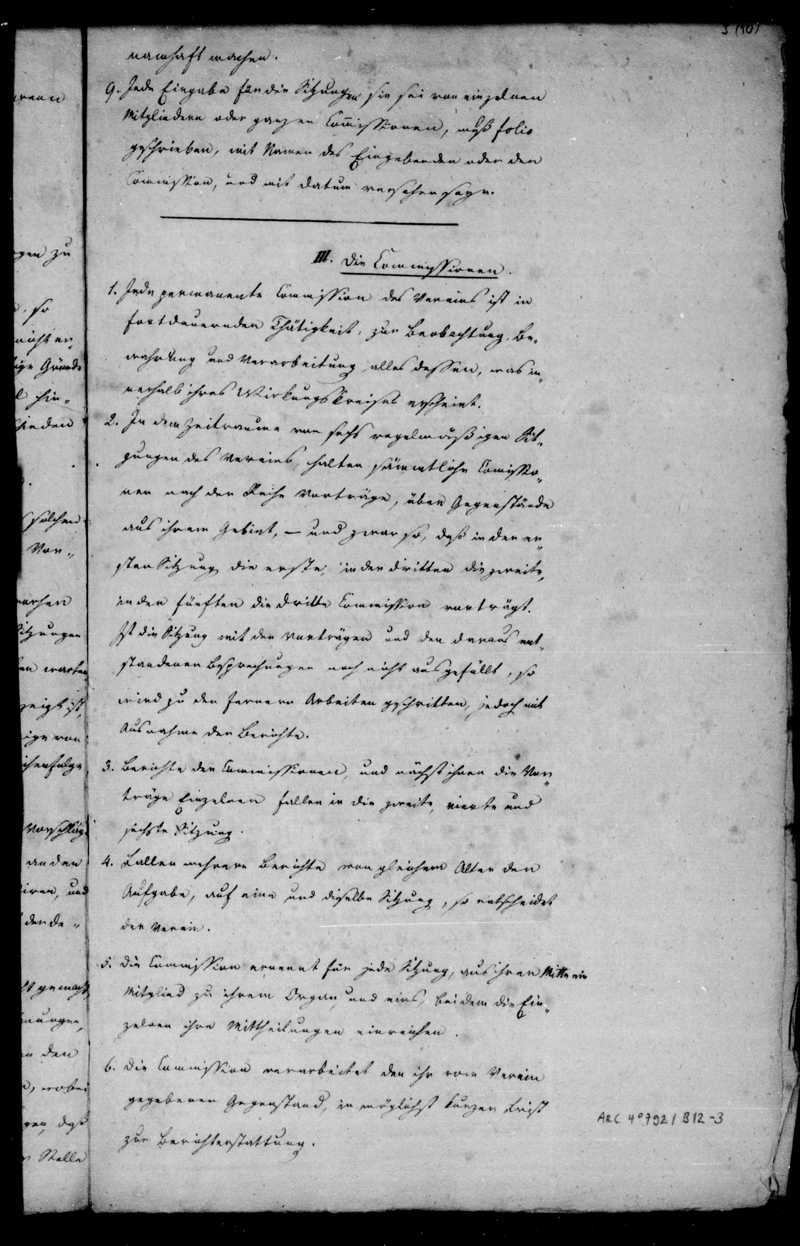 namhaft machen.
9. Jede Eingabe für die Sitzungen sie sei von einzelnen
Mitgliedern oder ganzen Com̄issionen, muß folio
geschrieben, mit Namen des Eingebenden oder der
Commission, und mit Datum versehen seyn.
III. Die Commissionen.
1. Jede permanente Commission des Vereins ist in
fortdauernder Thätigkeit, zur Beobachtung, Be-
wahrung und Verarbeitung alles dessen, was in-
nerhalb ihres Wirkungskreises erscheint.
2. In dem Zeitraume von sechs regelmäßigen Sit-
zungen des Vereins, halten sämmtliche Comissio-
nen nach der Reihe Vorträge, über Gegenstände
aus ihrem Gebiet, – und zwar so, daß in der er-
sten Sitzung die erste, in der dritten die zweite,
in der fünften die dritte Commission vorträgt.
Ist die Sitzung mit den Vorträgen und den daraus ent-
standenen Besprechungen noch nicht ausgefüllt, so
wird zu den fernern Arbeiten geschritten, jedoch mit
Ausnahme der Berichte.
3. Berichte der Commissionen, und nächst ihnen die Vor-
träge Einzelner fallen in die zweite, vierte und
sechste Sitzung.
4. Fallen mehrere Berichte von gleichem Alter der
Aufgabe, auf eine und dieselbe Sitzung, so entscheidet
der Verein.
5. Die Commission ernennt für jede Sitzung, aus ihrer Mitte ein
Mitglied zu ihrem Organ, und eins, bei dem die Ein-
zelnen ihre Mittheilungen einreichen.
6. Die Commission verarbeitet den ihr vom Verein
gegebenen Gegenstand, in möglichst kurzer Frist
zur Berichterstattung.
ARC 4° 792 / B12-3